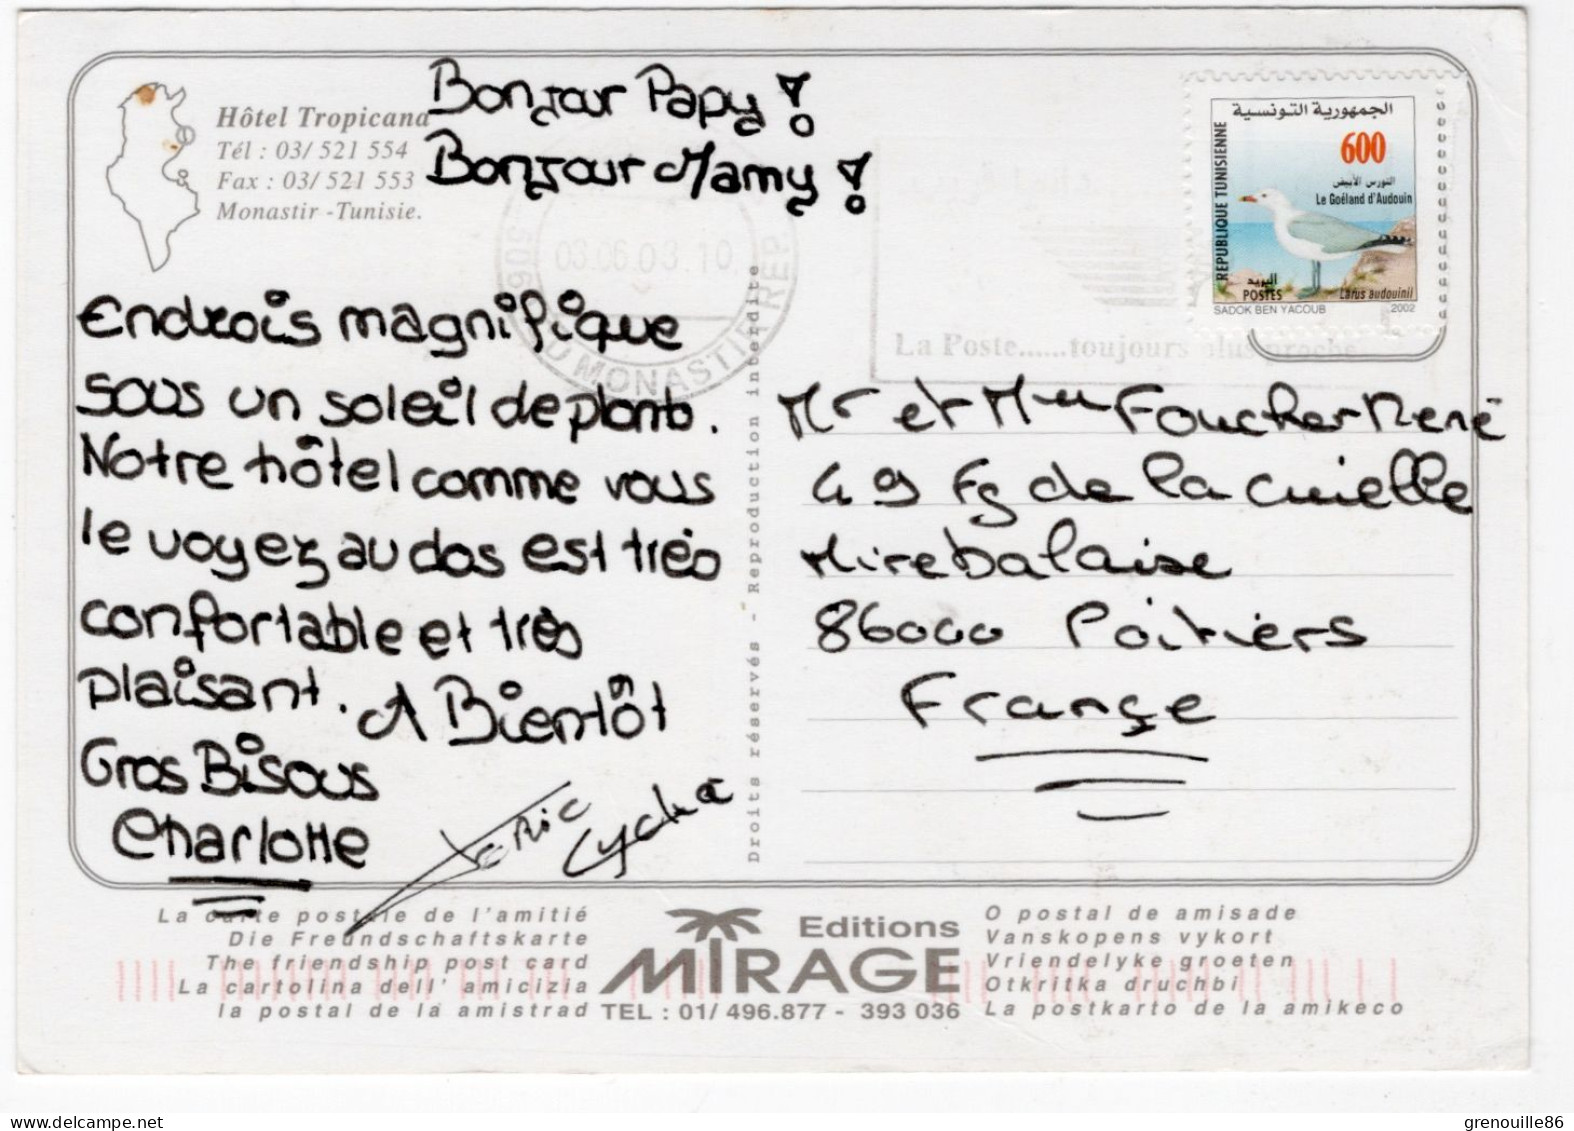 Hôtel Tropicana
Tél : 03/ 521 554
Fax : 03/ 521 553
Monastir -Tunisie.
Bonjour Papy !
Bonjour Mamy !
Endrois magnifique
sous un soleil de plomb.
Notre hôtel comme vous
le voyez au dos est très
confortable et très
plaisant. A Bientôt
Gros Bisous
Charlotte
03.06.03.10
MONASTIR REP
La Poste......toujours plus proche
الجمهورية التونسية
600
النورس الأبيض
Le Goéland d'Audouin
REPUBLIQUE TUNISIENNE
البريد
POSTES
Larus audouinii
SADOK BEN YACOUB 2002
Mr et Mme Foucher René
49 Fg de la Cueille
Mirebalaise
86000 Poitiers
France
Droits réservés - Reproduction interdite
La carte postale de l'amitié
Die Freundschaftskarte
The friendship post card
La cartolina dell' amicizia
la postal de la amistrad
Editions
MIRAGE
TEL : 01/ 496.877 - 393 036
O postal de amisade
Vanskopens vykort
Vriendelyke groeten
Otkritka druchbi
La postkarto de la amikeco
www.delcampe.net
grenouille86